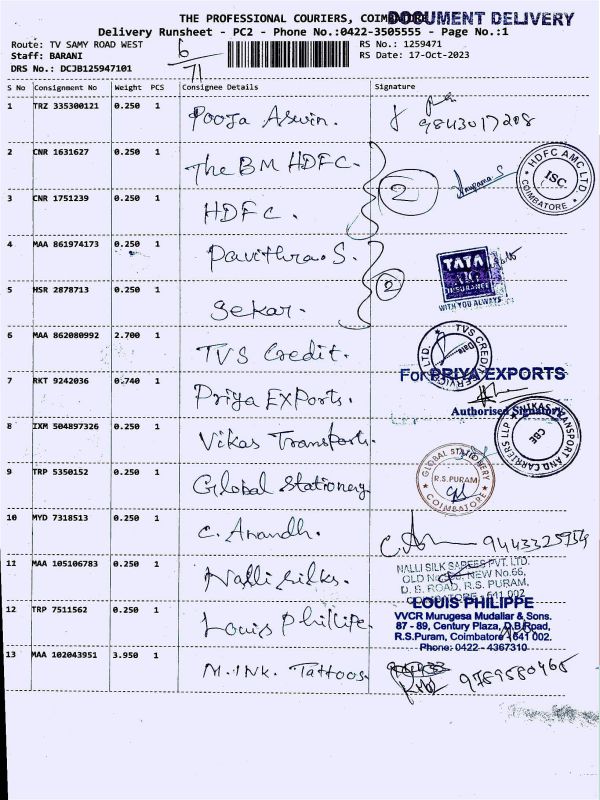 THE PROFESSIONAL COURIERS, COIMBATORE
DOCUMENT DELIVERY
Delivery Runsheet - PC2 - Phone No.:0422-3505555 - Page No.:1
Route: TV SAMY ROAD WEST
RS No.: 1259471
Staff: BARANI
RS Date: 17-Oct-2023
DRS No.: DCJB125947101
6/71
S No Consignment No Weight PCS Consignee Details Signature
1 TRZ 335300121 0.250 1 Pooja Aswin. 9843017208
2 CNR 1631627 0.250 1 The BM HDFC. Anupama S
HDFC AMC LTD. ISC COIMBATORE
3 CNR 1751239 0.250 1 HDFC. 2
4 MAA 861974173 0.250 1 Pavithra. S.
TATA AIG INSURANCE
WITH YOU ALWAYS
5 HSR 2878713 0.250 1 Sekar. 2
6 MAA 862080992 2.700 1 TVS Credit.
TVS CREDIT SERVICES LTD. Date
7 RKT 9242036 0.740 1 Priya Exports.
For PRIYA EXPORTS
Authorised Signatory
8 IXM 504897326 0.250 1 Vikas Transports.
VIKAS TRANSPORT AND CARRIERS LLP CBE
9 TRP 5350152 0.250 1 Global Stationery
GLOBAL STATIONERY R.S.PURAM COIMBATORE
10 MYD 7318513 0.250 1 C. Anandh. 9443325954
11 MAA 105106783 0.250 1 Nalli Silks.
NALLI SILK SAREES PVT. LTD.
OLD No. NEW No.56,
D. B. ROAD, R.S. PURAM,
COIMBATORE - 641 002
12 TRP 7511562 0.250 1 Louis Phillipe.
LOUIS PHILIPPE
VVCR Murugesa Mudaliar & Sons.
87 - 89, Century Plaza, D.B.Road,
R.S.Puram, Coimbatore - 641 002.
Phone: 0422 - 4367310
13 MAA 102043951 3.950 1 M. Ink. Tattoos 9789580466